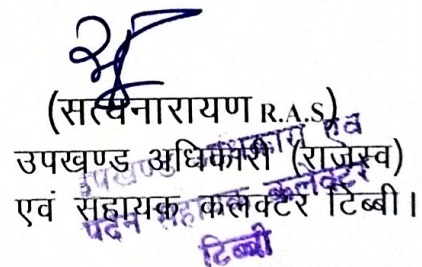 (सत्यनारायण R.A.S)
उपखण्ड अधिकारी (राजस्व)
एवं सहायक कलक्टर टिब्बी।
उपखण्ड अधिकारी एवं
पदेन सहायक कलेक्टर
टिब्बी